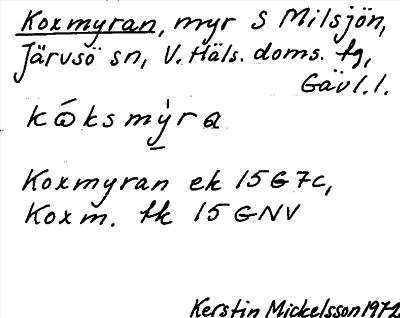 Koxmyran, myr S Milsjön,
Järvsö sn, V. Häls. doms. tg,
Gävl. l.
kώksmỳra
Koxmyran ek 15G7c,
Koxm. tk 15GNV
Kerstin Mickelsson 1972